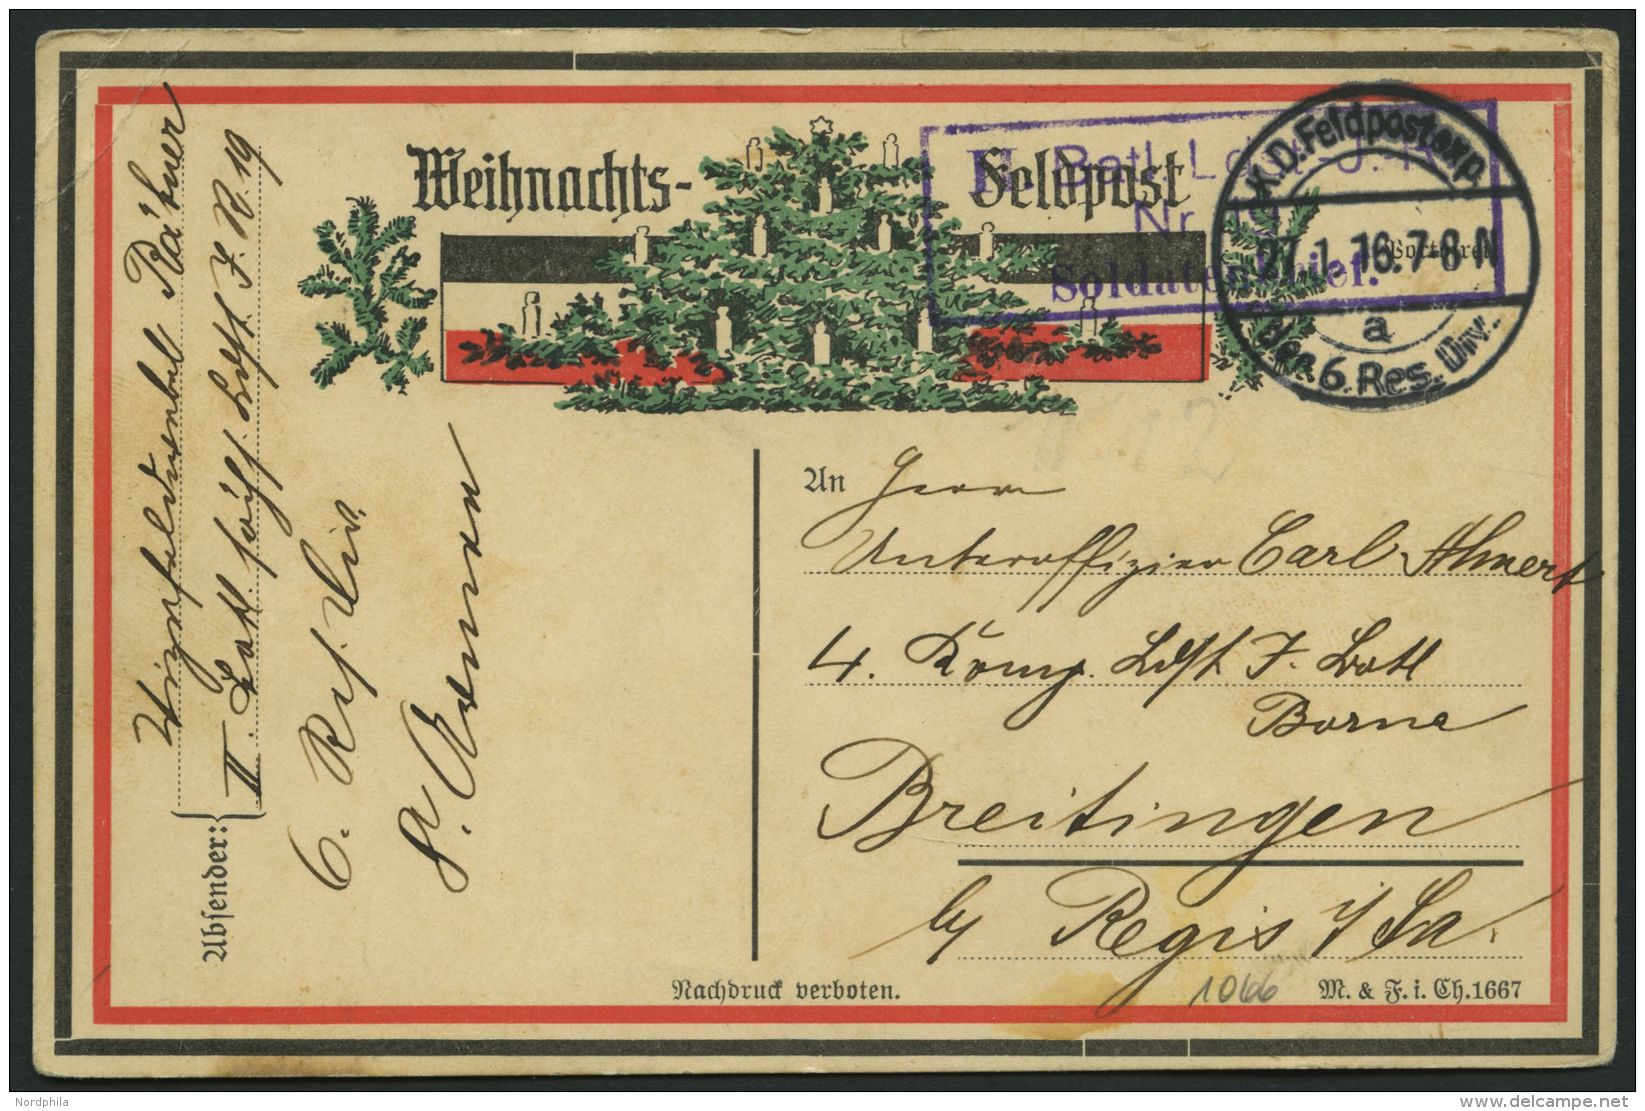 Weihnachts- Feldpost
Portofrei
II. Batl. Ldst. J. R.
Nr. 19
Soldatenbrief.
K.D. Feldpostexp.
27.1.16.7-8 N
a
der 6. Res. Div.
Absender:
Vizefeldwebel
II. Batl. sächs. Ldst. J. R. 19
6. Res. Div.
An Herrn
Unteroffizier Carl Ahnert
4. Komp. Ldst J. Batl
Borna
Breitingen
by Regis i/Sa.
1066
Nachdruck verboten.
M. & F. i. Ch. 1667
Nordphila
www.delcampe.net